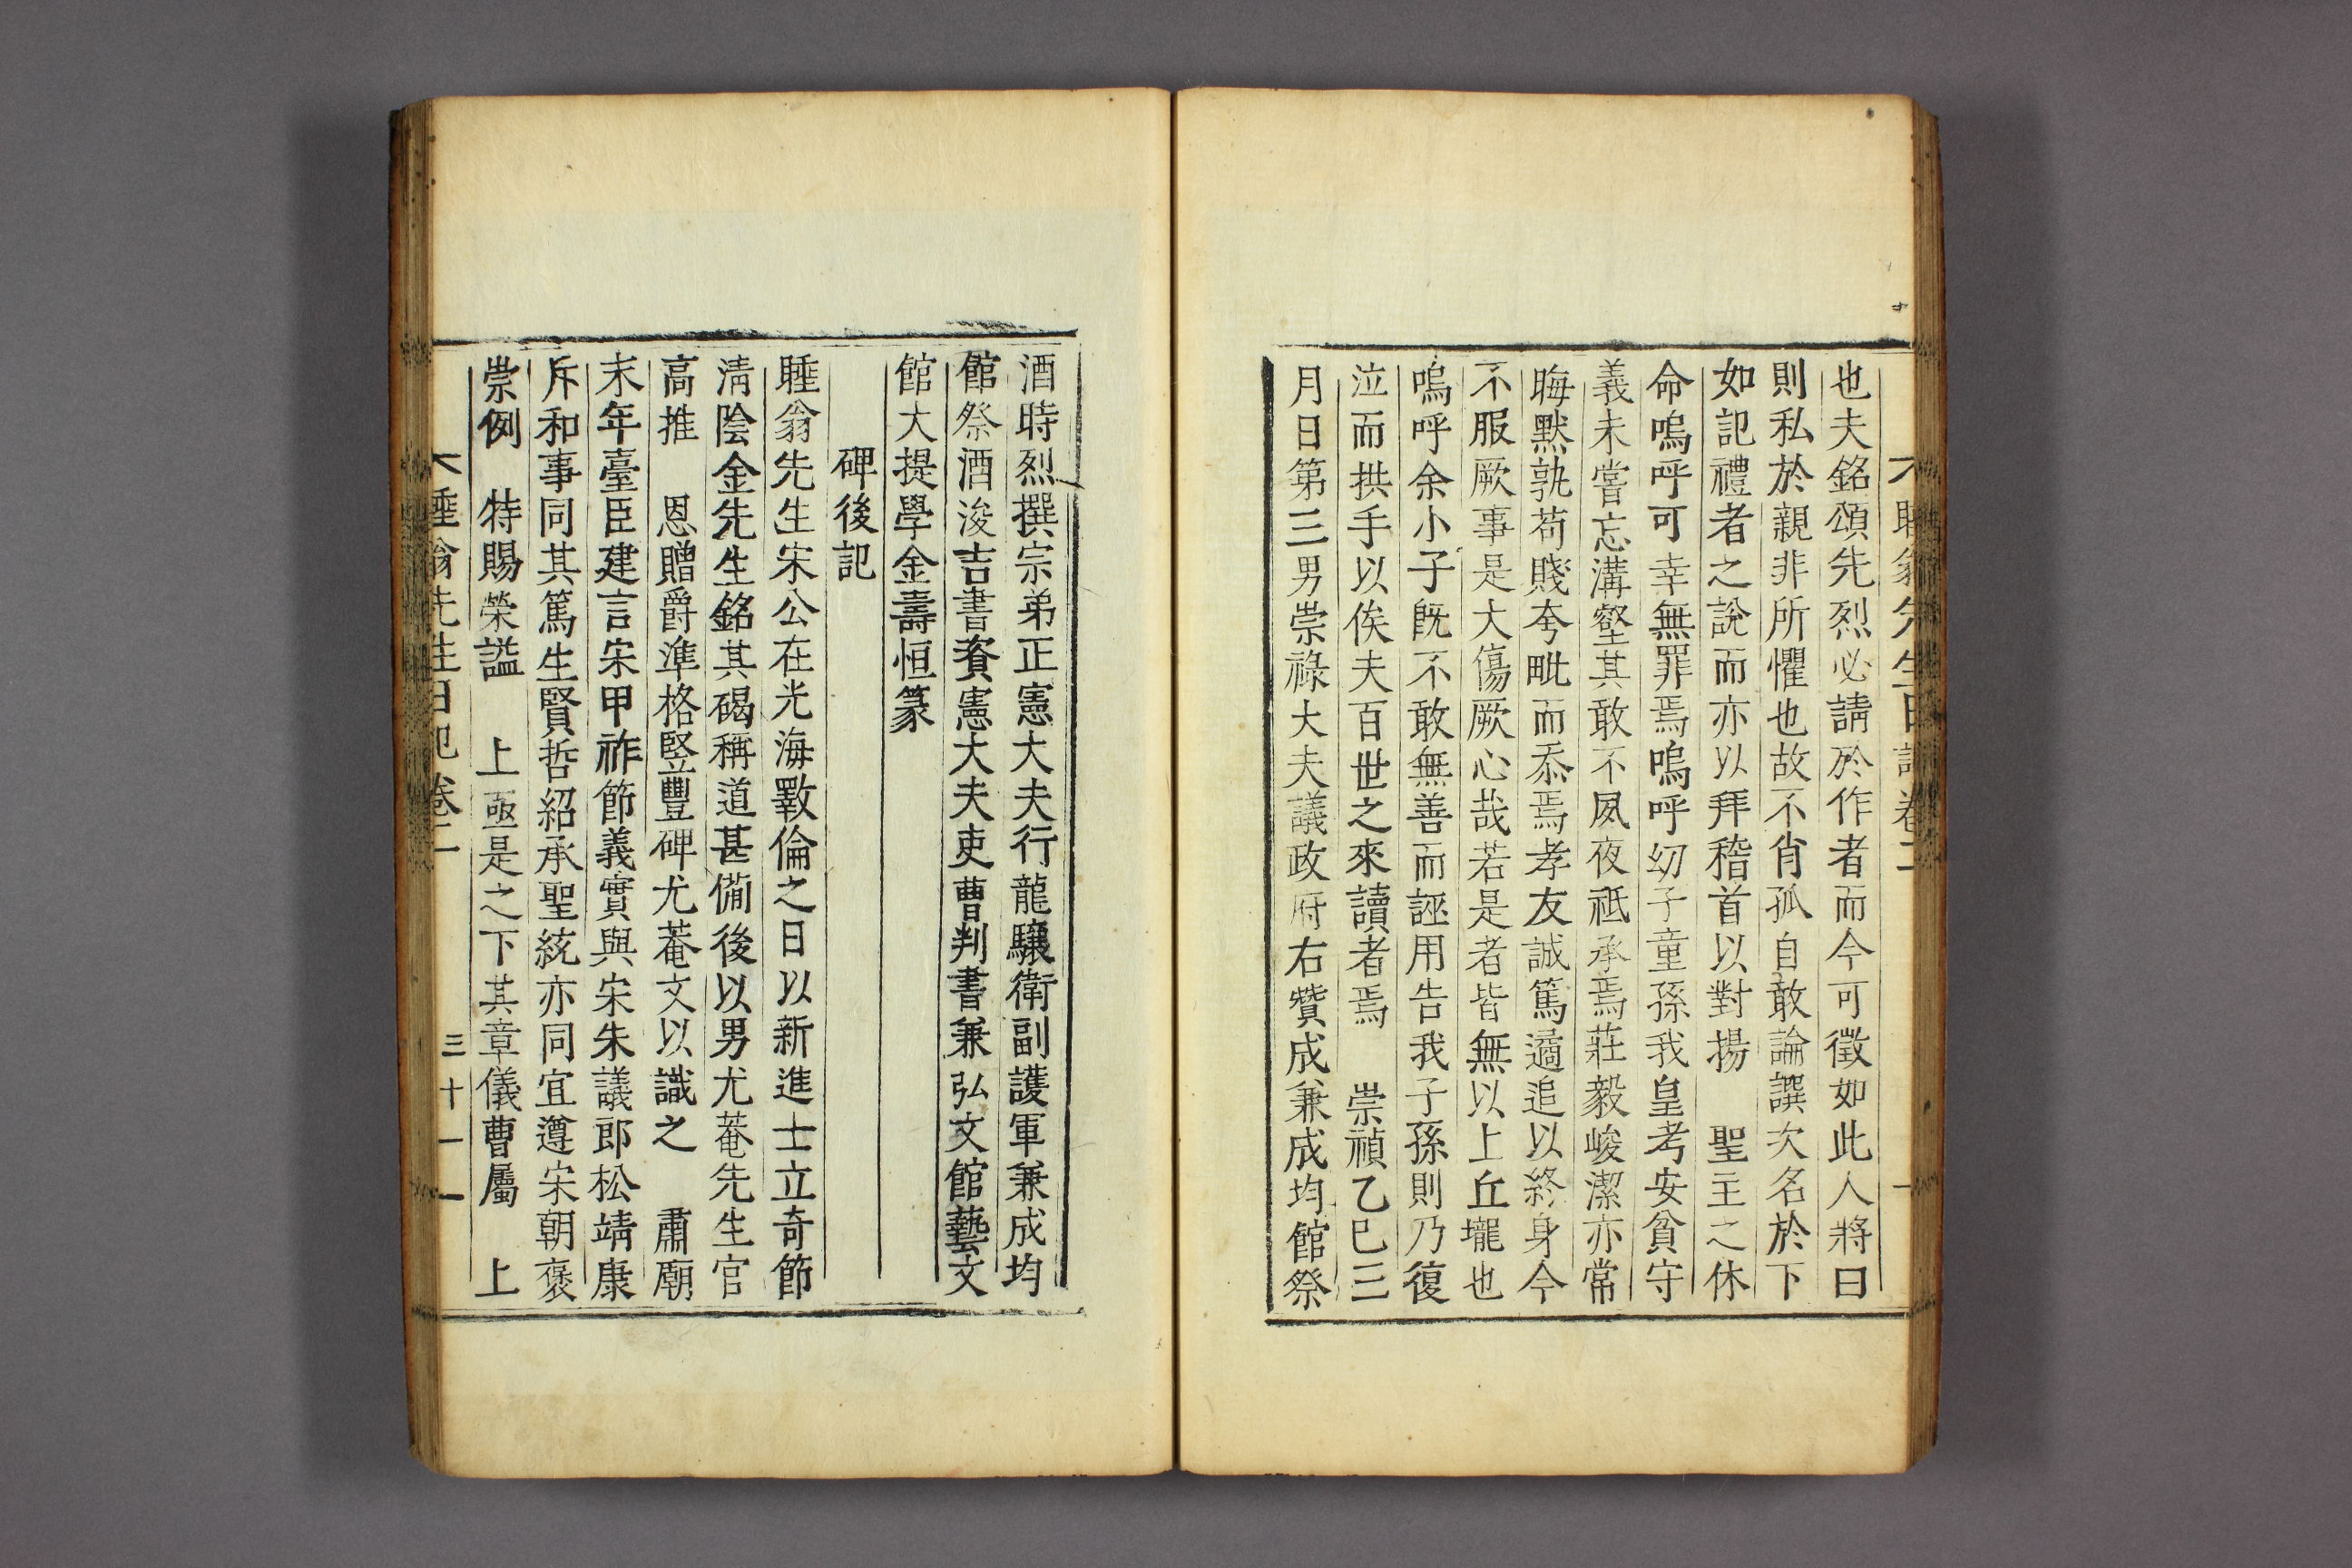 睡翁先生日記卷二
也夫銘頌先烈必請於作者而今可徵如此人將曰
則私於親非所懼也故不肖孤自敢論譔次名於下
如記禮者之說而亦以拜稽首以對揚 聖主之休
命嗚呼可幸無罪焉嗚呼幼子童孫我皇考安貧守
義未嘗忘溝壑其敢不夙夜祗承焉莊毅峻潔亦常
晦默孰苟賤夸毗而忝焉孝友誠篤遹追以終身今
不服厥事是大傷厥心哉若是者皆無以上丘壠也
嗚呼余小子旣不敢無善而誣用告我子孫則乃復
泣而拱手以俟夫百世之來讀者焉 崇禎乙巳三
月日第三男崇祿大夫議政府右贊成兼成均館祭
酒時烈撰宗弟正憲大夫行龍驤衛副護軍兼成均
館祭酒浚吉書資憲大夫吏曹判書兼弘文館藝文
館大提學金壽恒篆
碑後記
睡翁先生宋公在光海斁倫之日以新進士立奇節
淸陰金先生銘其碣稱道甚備後以男尤菴先生官
高推 恩贈爵準格竪豐碑尤菴文以識之 肅廟
末年臺臣建言宋甲祚節義實與宋朱議郞松靖康
斥和事同其篤生賢哲紹承聖統亦同宜遵宋朝褒
崇例 特賜榮謚 上亟是之下其章儀曹屬 上
睡翁先生日記卷二 三十一